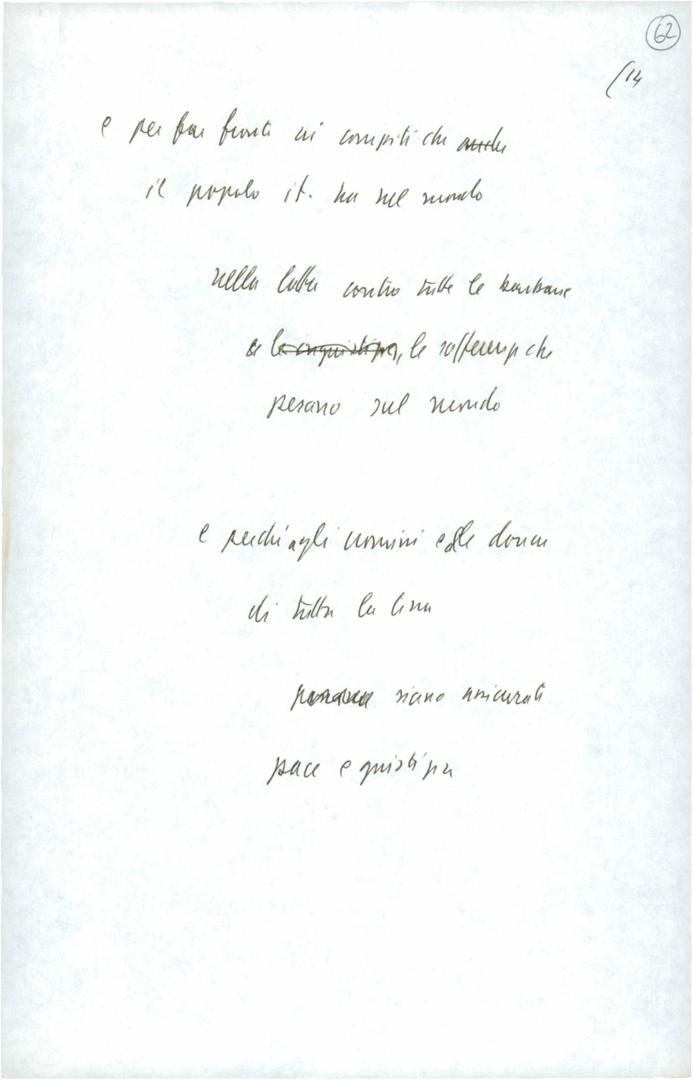 62
14
e per far fronte ai compiti che anche
il popolo it. ha nel mondo
nella lotta contro tutte le barbarie
e le ingiustizie, le sofferenze che
pesano sul mondo
e perché agli uomini e alle donne
di tutta la terra
siano assicurati
pace e giustizia